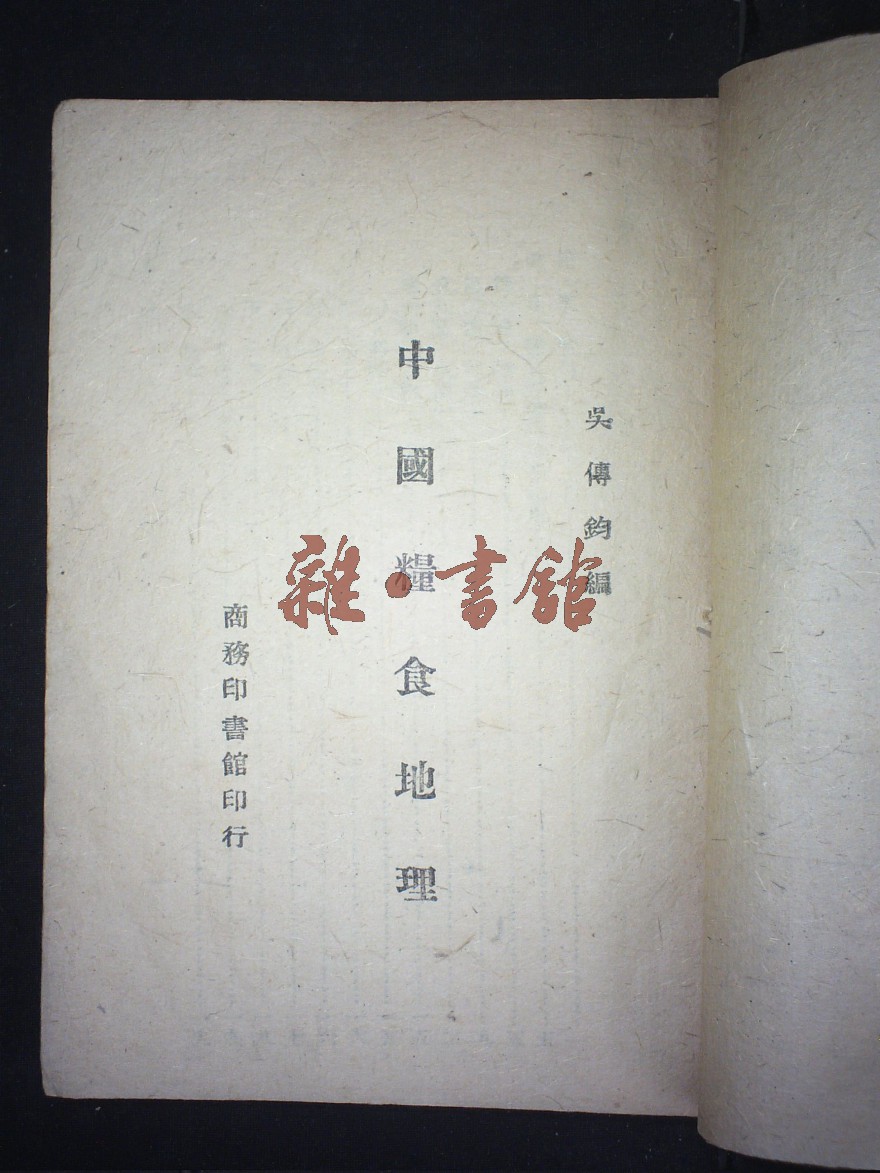 吳傳鈞編
中國糧食地理
商務印書館印行
雜·書館